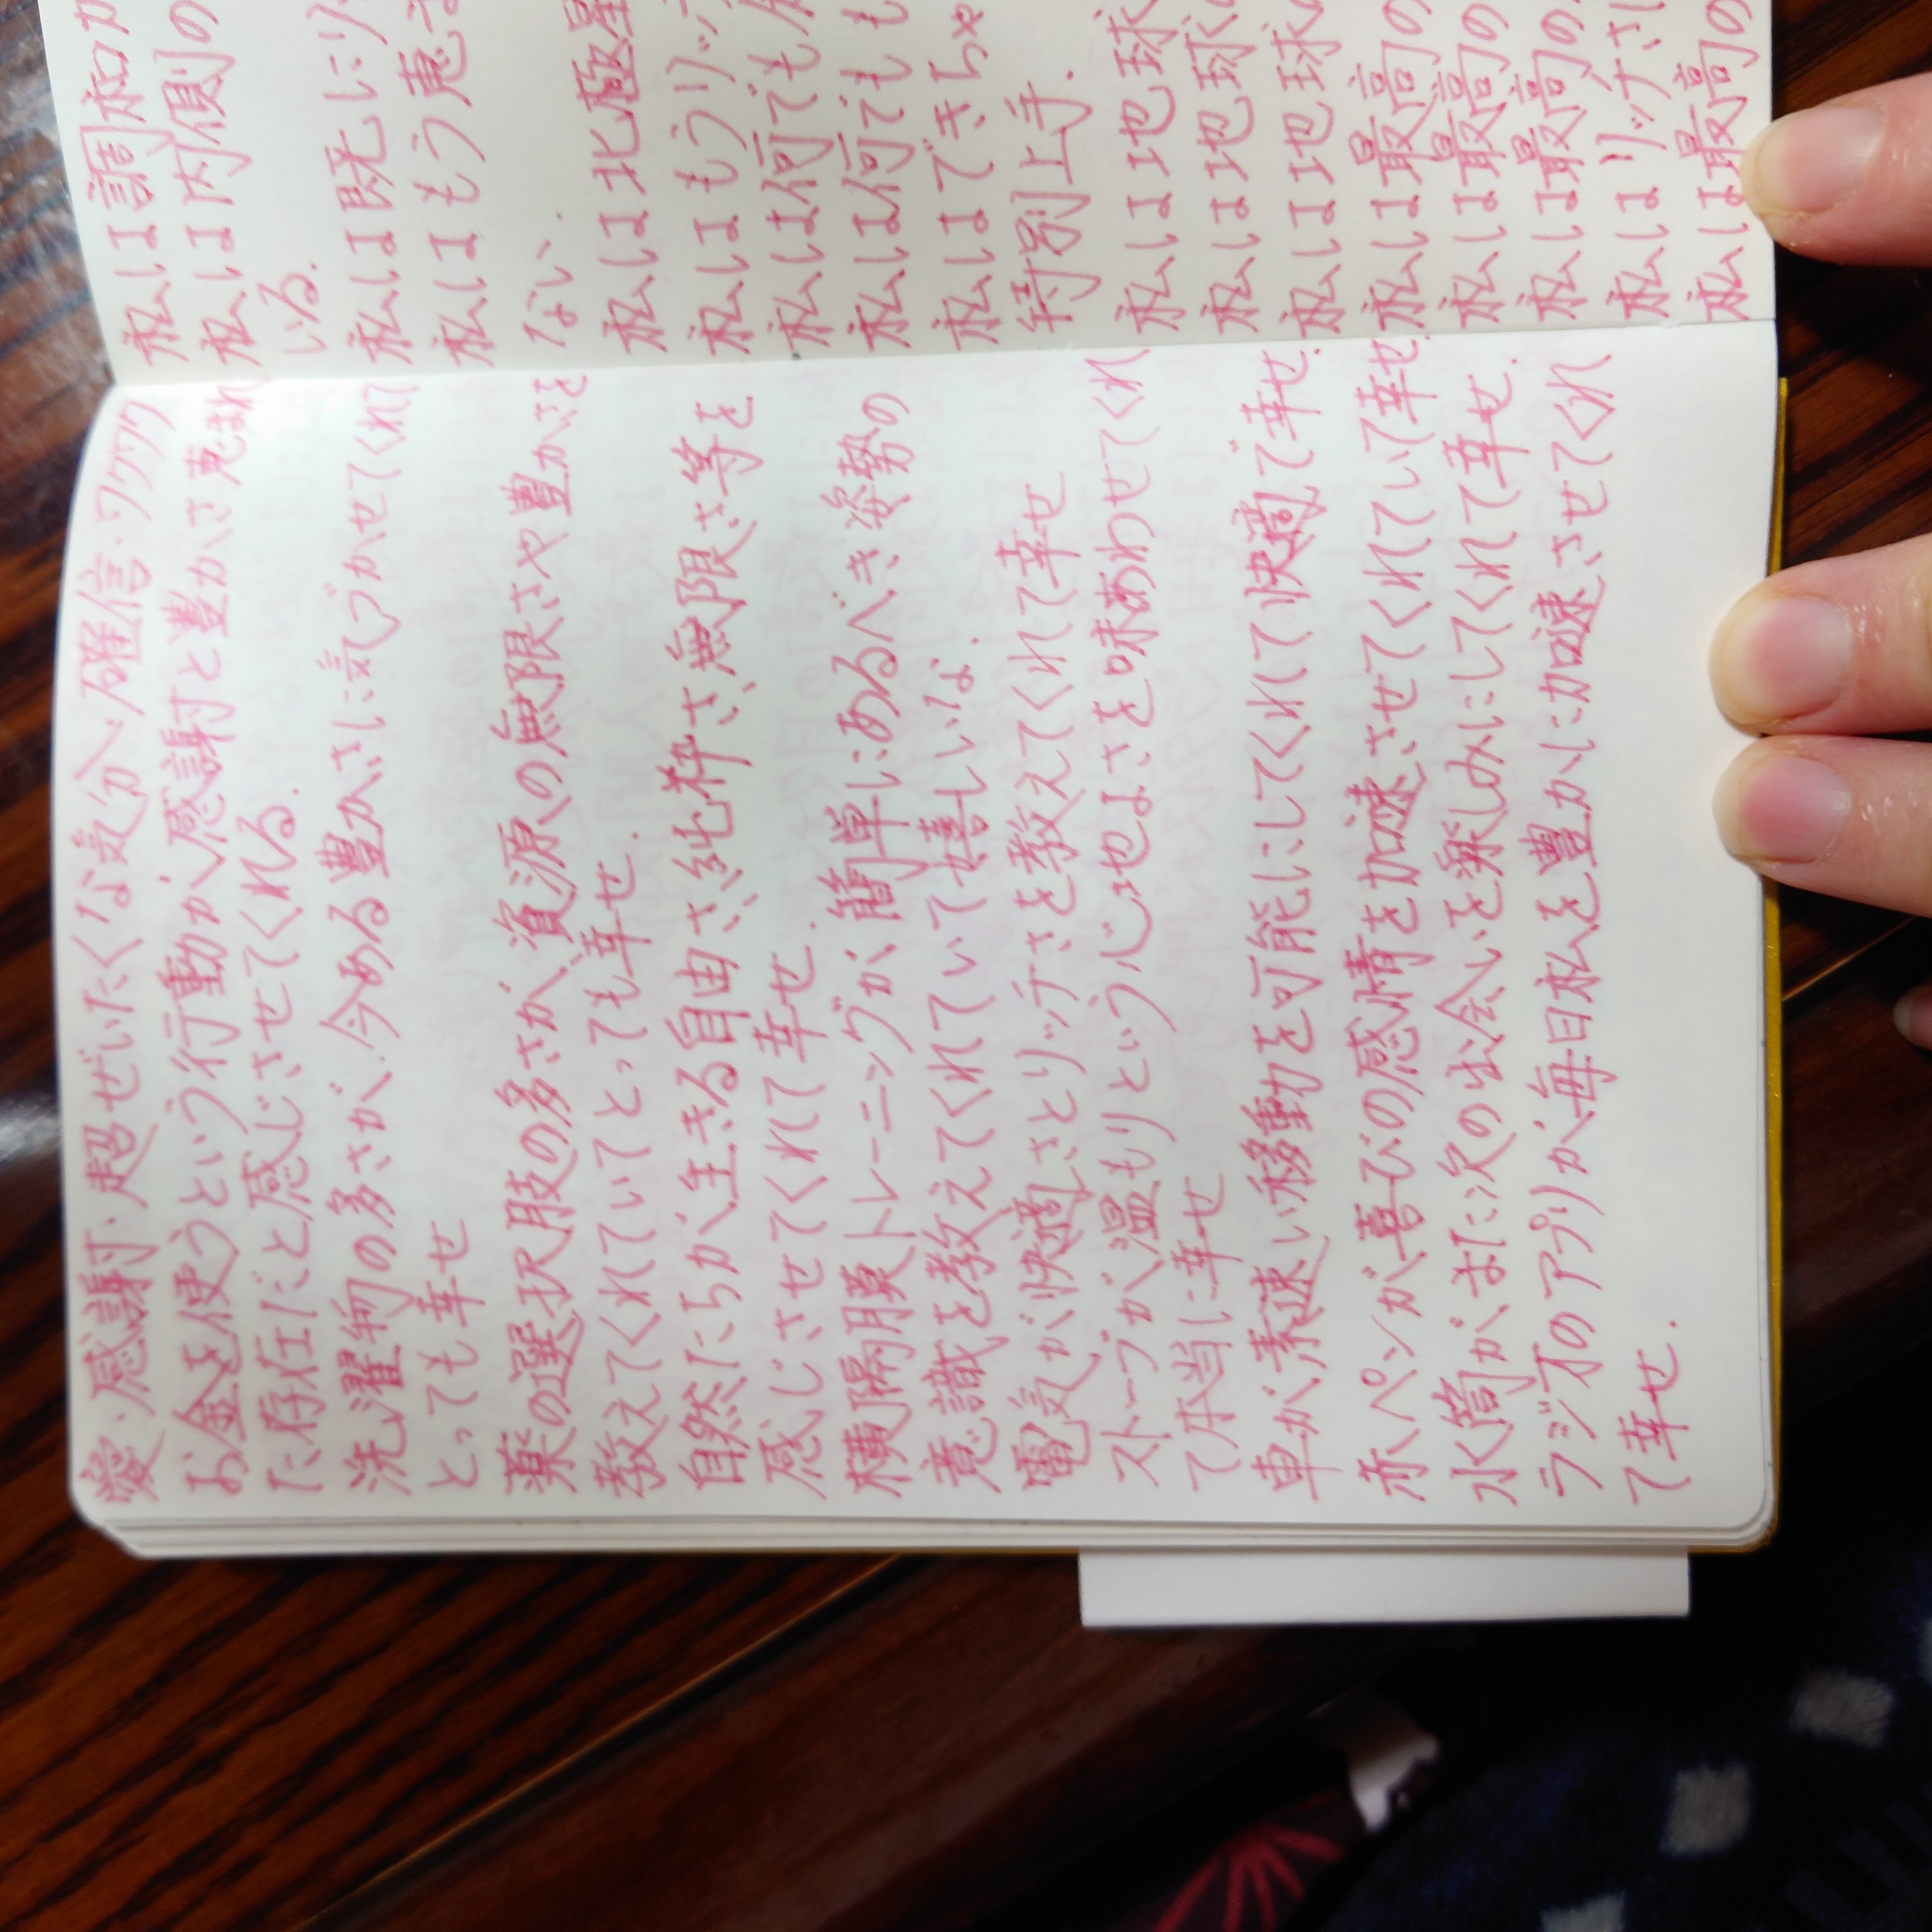 愛・感謝・超ぜいたくな気分へ確信・ワクワク
お金を使うという行動が、感謝と豊かさ恵まれ
た存在だと感じさせてくれる.
洗濯物の多さが、今ある豊かさに気づかせてくれて
とっても幸せ
薬の選択肢の多さが、資源の無限さや豊かさを
教えてくれていてとっても幸せ.
自然たちが、生きる自由さ、純粋さ、無限さ等を
感じさせてくれて幸せ.
横隔膜トレーニングが、簡単にあるべき姿勢の
意識を教えてくれていて嬉しいな.
電気が快適さとリッチさを教えてくれて幸せ
ストーブが、温もりという心地よさを味あわせてくれ
て本当に幸せ
車が、素速い移動を可能にしてくれて快適で幸せ.
赤ペンが、喜びの感情を加速させてくれていて幸せ
水筒が、また次の出会いを楽しみにしてくれて幸せ.
ラジオのアプリが、毎日私を豊かに加速させてくれ
て幸せ.
私は調和
私は内側の
いる.
私は既にリ
私はもう恵
ない.
私は北極星
私はもうリッ
私は何でも
私は何でも
私はできちゃ
特別上手.
私は地球
私は地球
私は地球
私は最高の
私は最高の
私は最高の
私はリッチさ
私は最高の